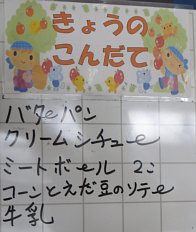 きょうの
こんだて
バターパン
クリームシチュー
ミートボール 2こ
コーンとえだ豆のソテー
牛乳